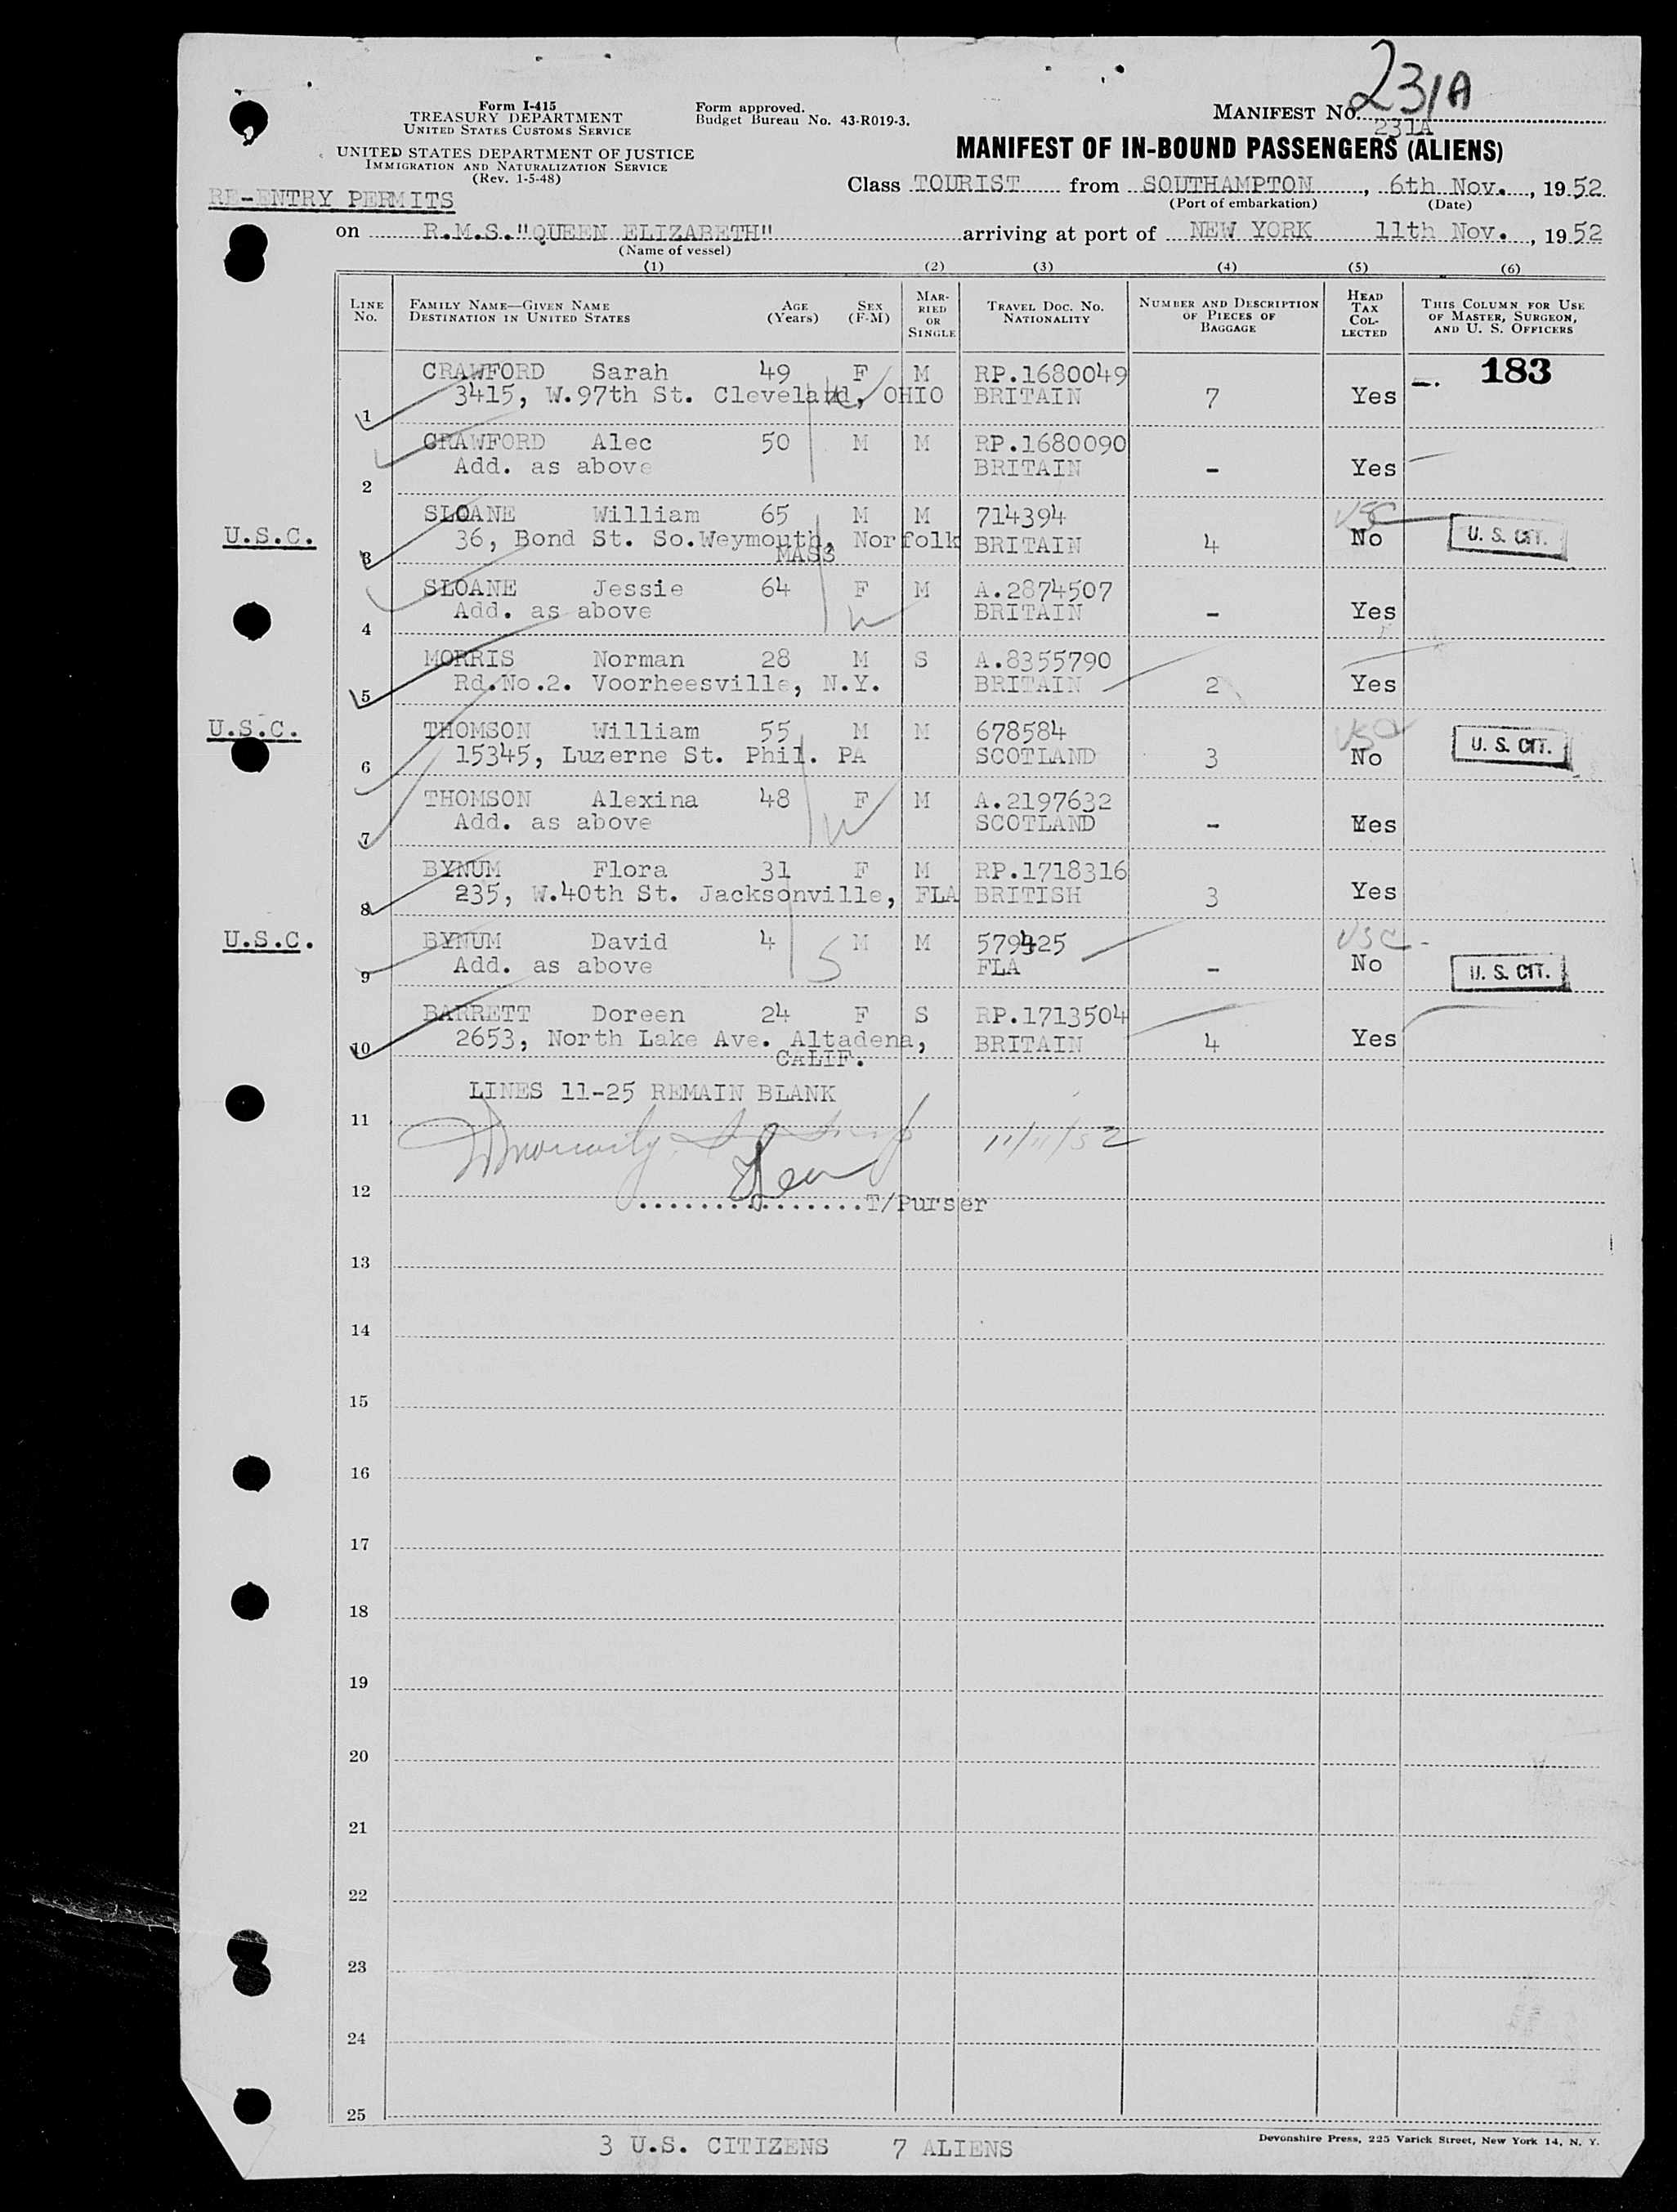 231A
Form I-415
TREASURY DEPARTMENT
UNITED STATES CUSTOMS SERVICE
UNITED STATES DEPARTMENT OF JUSTICE
IMMIGRATION AND NATURALIZATION SERVICE
(Rev. 1-5-48)
Form approved.
Budget Bureau No. 43-R019-3.
MANIFEST No.
231A
MANIFEST OF IN-BOUND PASSENGERS (ALIENS)
RE-ENTRY PERMITS
Class TOURIST from SOUTHAMPTON, 6th Nov., 19 52
(Port of embarkation) (Date)
on R.M.S."QUEEN ELIZABETH" arriving at port of NEW YORK 11th Nov., 19 52
(Name of vessel)
(1) (2) (3) (4) (5) (6)
LINE No. FAMILY NAME—GIVEN NAME DESTINATION IN UNITED STATES AGE (Years) SEX (F-M) MARRIED OR SINGLE TRAVEL DOC. NO. NATIONALITY NUMBER AND DESCRIPTION OF PIECES OF BAGGAGE HEAD TAX COLLECTED THIS COLUMN FOR USE OF MASTER, SURGEON, AND U. S. OFFICERS
CRAWFORD Sarah 49 F M RP.1680049 183
1 3415, W.97th St. Cleveland, OHIO BRITAIN 7 Yes
CRAWFORD Alec 50 M M RP.1680090
2 Add. as above BRITAIN - Yes
SLOANE William 65 M M 714394 USC
U.S.C. 3 36, Bond St. So.Weymouth, Norfolk BRITAIN 4 No U. S. CIT.
MASS
SLOANE Jessie 64 F M A.2874507
4 Add. as above BRITAIN - Yes
MORRIS Norman 28 M S A.8355790
5 Rd.No.2. Voorheesville, N.Y. BRITAIN 2 Yes
U.S.C. THOMSON William 55 M M 678584 USC
6 15345, Luzerne St. Phil. PA SCOTLAND 3 No U. S. CIT.
THOMSON Alexina 48 F M A.2197632
7 Add. as above SCOTLAND - Yes
BYNUM Flora 31 F M RP.1718316
8 235, W.40th St. Jacksonville, FLA BRITISH 3 Yes
U.S.C. BYNUM David 4 M M 579425 USC
9 Add. as above S FLA - No U. S. CIT.
BARRETT Doreen 24 F S RP.1713504
10 2653, North Lake Ave. Altadena, BRITAIN 4 Yes
CALIF.
LINES 11-25 REMAIN BLANK
11
11/11/52
12
T/Purser
13
14
15
16
17
18
19
20
21
22
23
24
25
3 U.S. CITIZENS 7 ALIENS
Devonshire Press, 225 Varick Street, New York 14, N. Y.